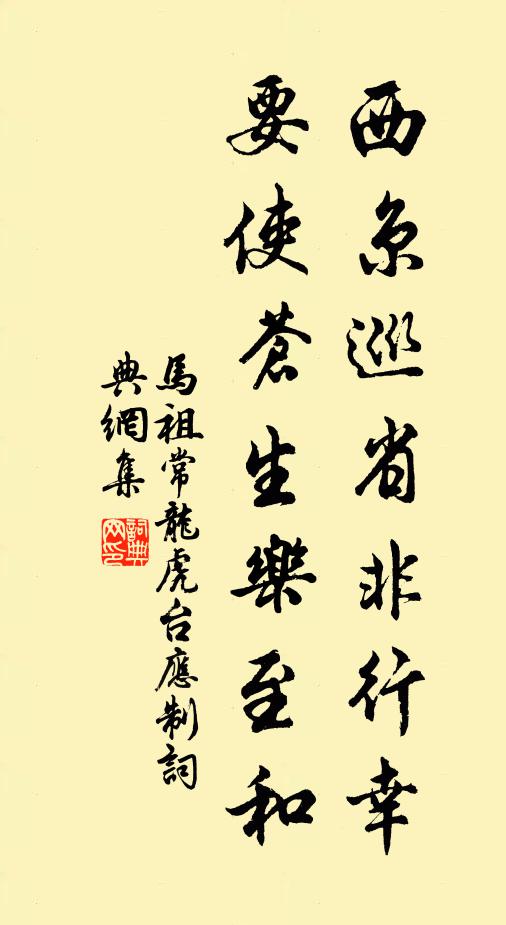 西京巡省非行幸
要使蒼生樂至和
馬祖常龍虎台應制詞
典網集
詞典網印